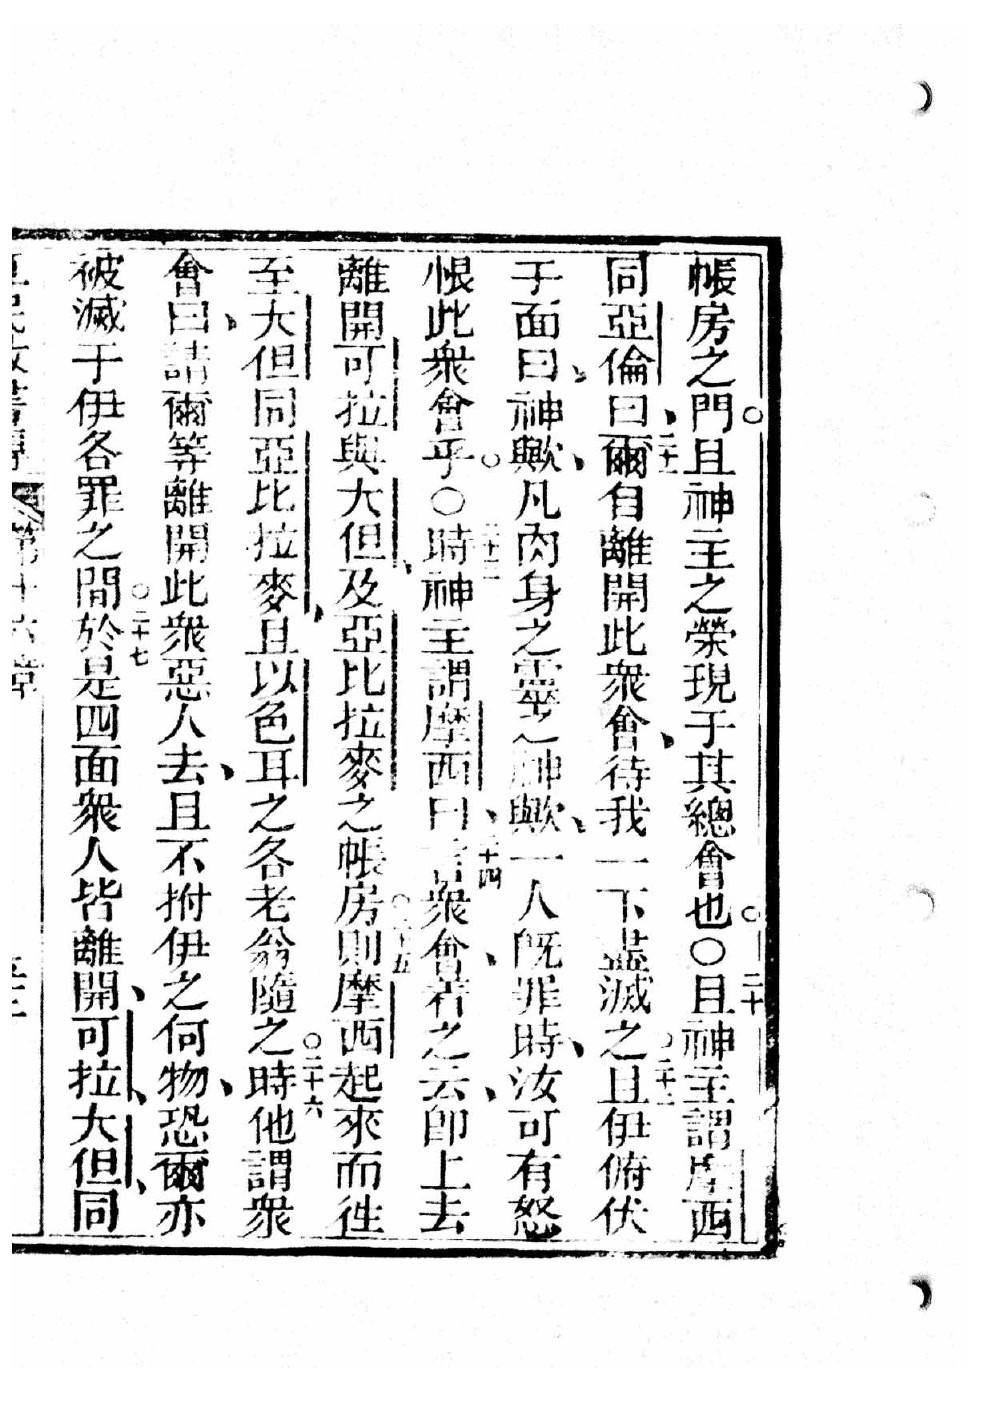 帳房之門且神主之榮現于其總會也○且神主謂摩西
二十
同亞倫曰爾自離開此衆會待我一下盡滅之且伊俯伏
二十一
二十二
于面曰神歟凡肉身之靈之神歟一人旣罪時汝可有怒
恨此衆會乎○時神主謂摩西曰言衆會若之云卽上去
二十三
二十四
離開可拉與大但及亞比拉麥之帳房則摩西起來而徃
二十五
至大但同亞比拉麥且以色耳之各老翁隨之時他謂衆
二十六
會曰請爾等離開此衆惡人去且不拊伊之何物恐爾亦
被滅于伊各罪之間於是四面衆人皆離開可拉大但同
二十七
第十六章